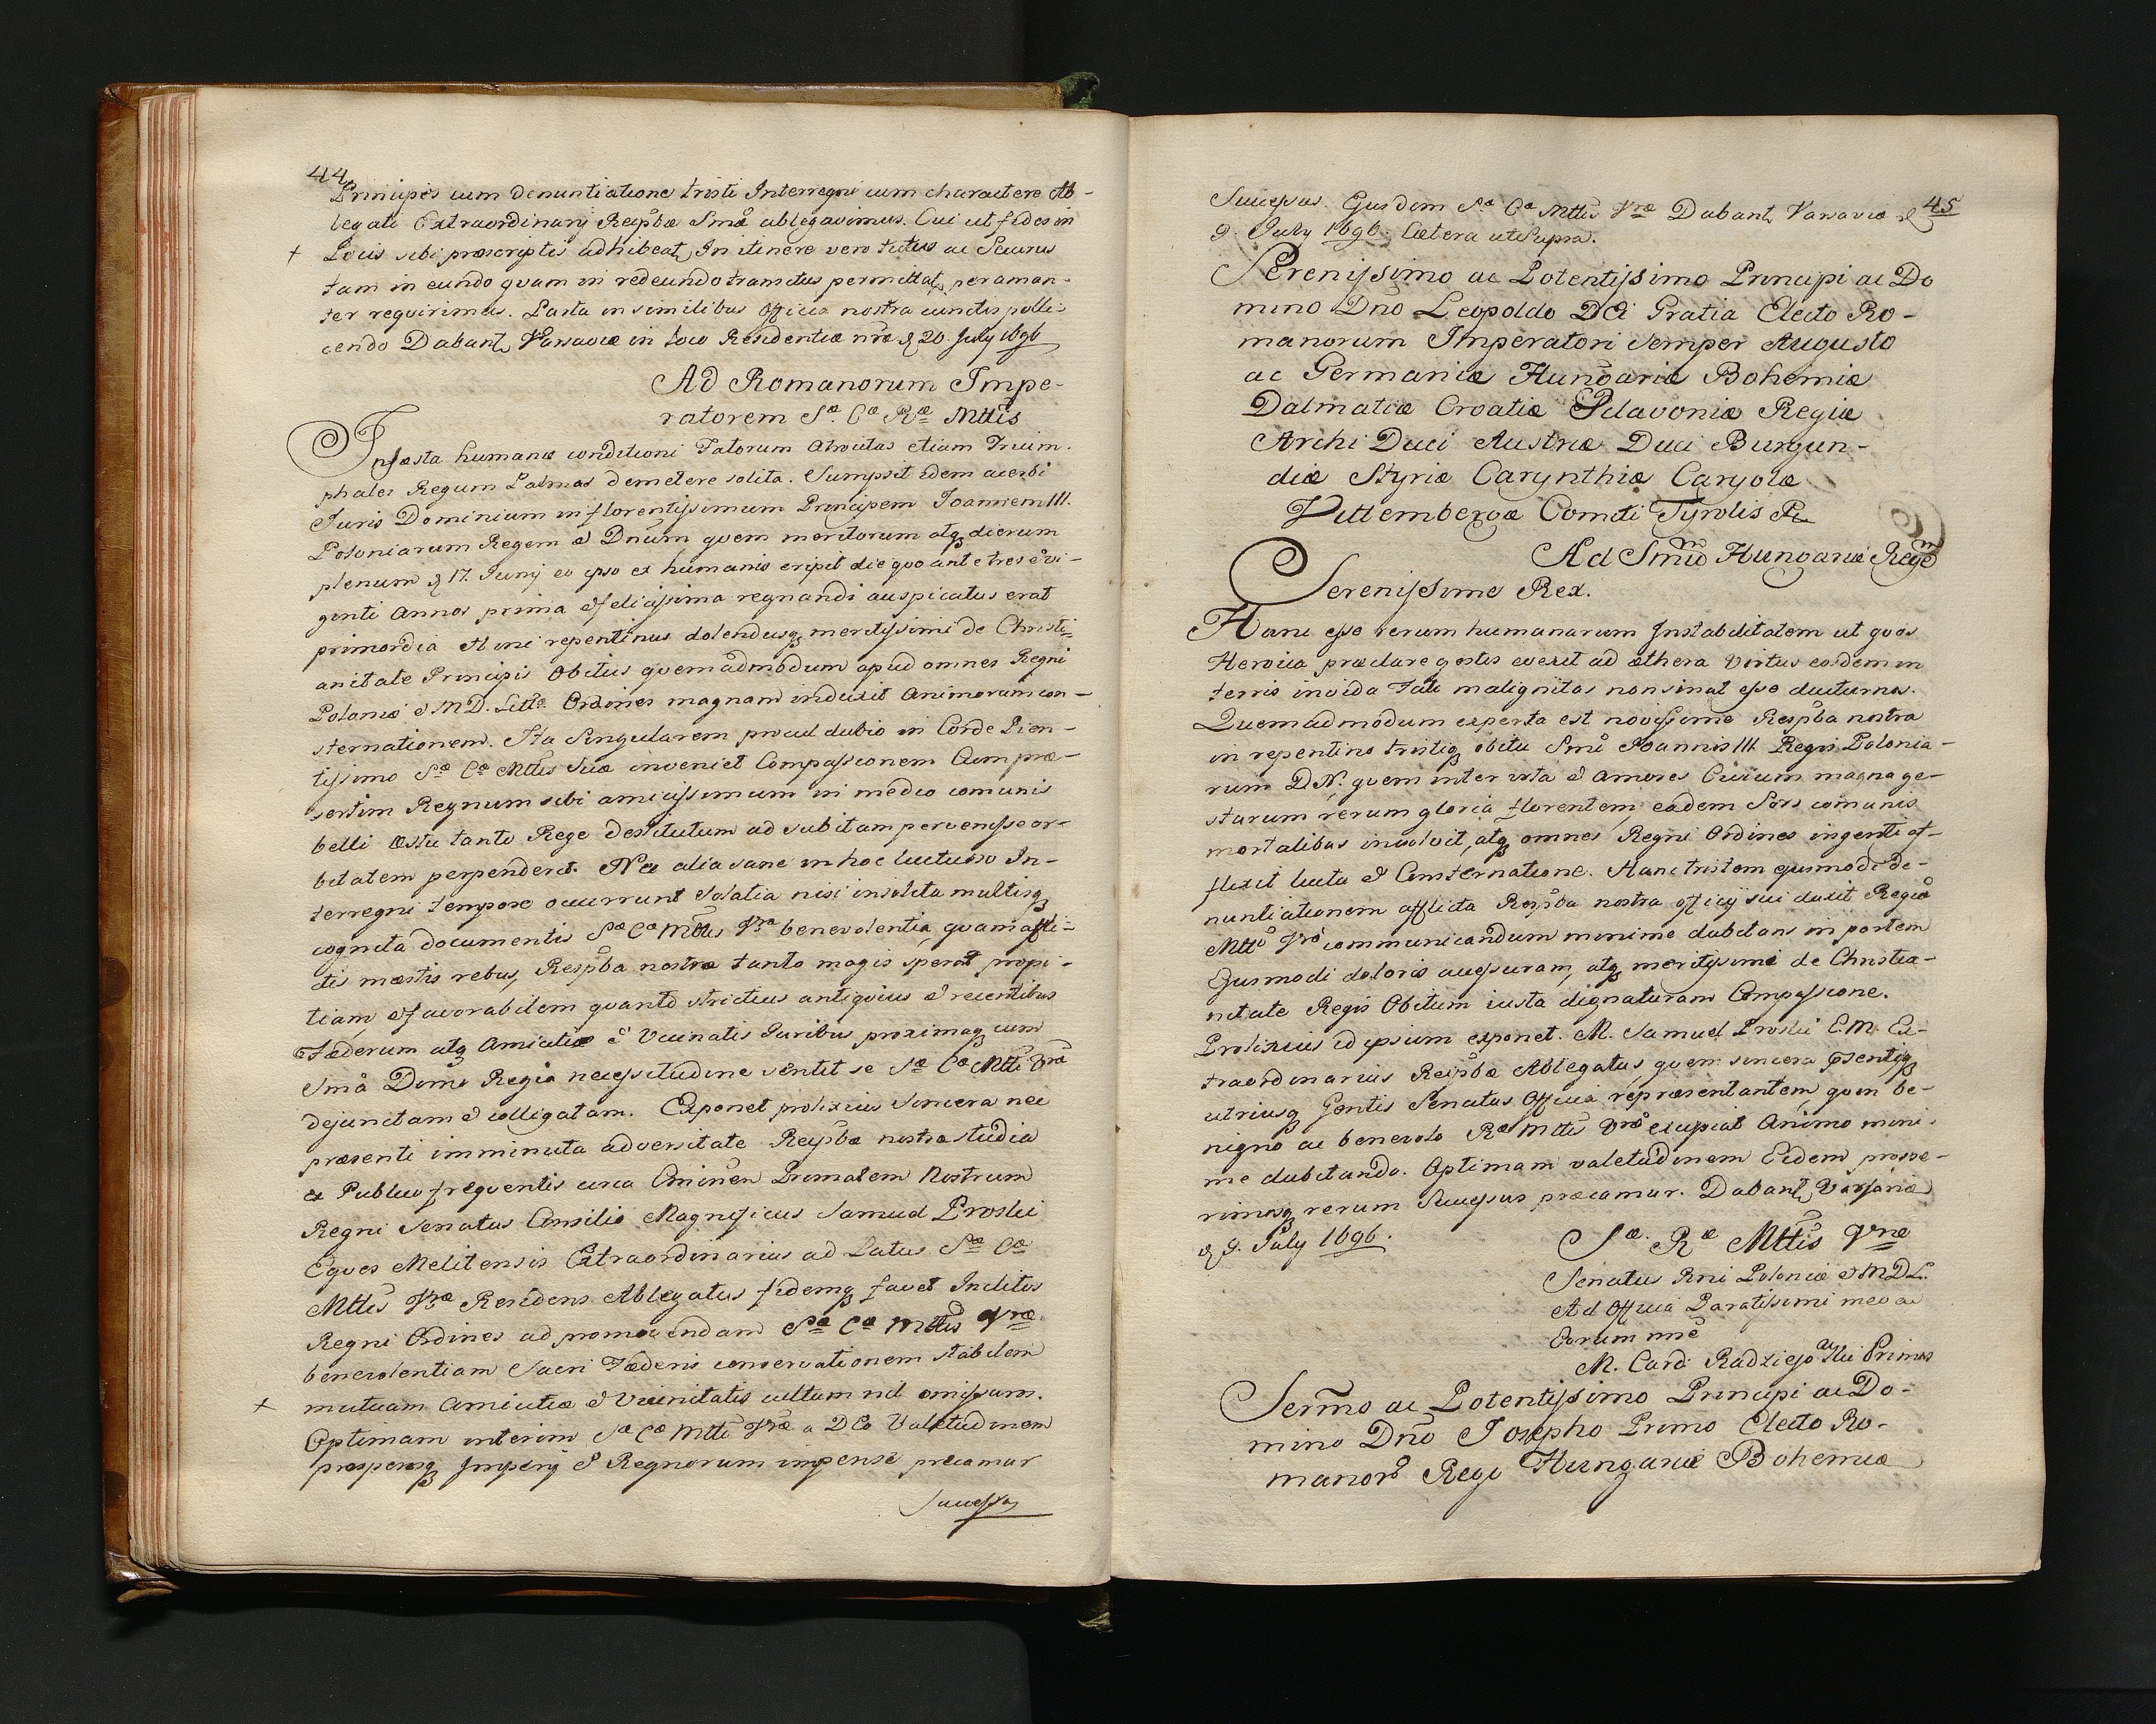 44
Principes cum denuntiatione tristi Interregni cum charactere Ab-
legati Extraordinarij Reipbæ Smæ ablegavimus. Cui ut fides in
+ Locis sibi præscriptis adhibeat, In itinere vero tutus ac Securus
tam in eundo quam in redeundo transitus permittat, peraman-
ter requirimus. Paria in similibus officia nostra cunctis polli-
cendo Dabant, Varsaviæ in loco Residentiæ nræ d 20 July 1696
Ad Romanorum Impe-
ratorem Sæ. Cæ Ræ Mttis
Infæsta humanæ conditioni Fatorum atrocitas etiam Trium-
phales Regum Palmas demetere solita. Sumpsit idem acerbi
Iuris Dominium in florentissimum Principem Joannem III.
Poloniarum Regem & Dnum quem meritorum atq dierum
plenum d 17. Junij eo ipso ex humanis eripit die quo ante tres & vi-
ginti Annos prima & felicissima regnandi auspicatus erat
primordia Hinc repentinus dolendusq meritissimi de Christi-
anitate Principis Obitus quemadmodum apud omnes Regni
Poloniæ & M D. Litt. Ordines magnam induxit Animorum con-
sternationem. Ita Singularem procul dubio in Corde Pien-
tissimo Sæ Cæ Mttis Suæ inveniet Compassionem Cum præ-
sertim Regnum sibi amicissimum in medio comunis
belli æstu tanto Rege destitutum ad subitam pervenisse or-
bitatem perpenderet. Nec alia sane in hoc luctuoso In-
terregni tempore occurrunt Solatia nisi insolita multisq
cognita documentis Sæ Cæ Mttis Vræ benevolentia, quam affli-
ctis mæstis rebus, Respba nostra tanto magis sperat propi-
tiam & favorabilem quanto strictius antiquius & recentibus
Fæderum atq Amicitiæ & Vicinatis Iuribus proximaq cum
Smâ Domo Regiâ necessitudine sentit se Sæ Cæ Mtti Vræ
dejunctam & colligatam. Exponet prolixius Sincera nec
præsenti imminuta adversitate Reipbæ nostræ studia
ex Publico frequentis circa Eminen Primatem Nostrum
Regni Senatus Consilio Magnificus Samuel Proski
Eques Melitensis Extraordinarius ad Latus Sæ Cæ
Mttis Vræ Residens Ablegatus fidemq facet Inclitos
Regni Ordines ad promovendam Sæ Cæ Mttis Vræ
benevolentiam Sacri Fæderis conservationem stabilem
+ mutuam Amicitiæ & Vicinitatis cultum nil omissuros.
Optimam interim Sæ Cæ Mtti Vræ a DEo Valetudinem
prosperosq Imperij & Regnorum impense precamur
Successus
Successus Ejusdem Sæ Cæ Mttis Vræ Dabant, Varsaviæ d 45
9. July 1696. Cætera ut Supra.
Serenissimo ac Potentissimo Principi ac Do
mino Dno Leopoldo DEi Gratia Electo Ro-
manorum Imperatori semper Augusto
ac Germaniæ Hungariæ Bohemiæ
Dalmatiæ Croatiæ Sclavoniæ Regi
Archi Duci Austriæ Duci Burgun-
diæ Styriæ Carynthiæ Caryolæ
Vittembergæ Comiti Tyrolis &
Ad Smu Hungariæ Rege
Serenissime Rex.
Hanc esse rerum humanarum Instabilitatem ut quos
Heroica præclare gestis evexit ad æthera Virtus eosdem in
terris invida Fati malignitas non sinat esse diuturnos.
Quemadmodum experta est novissime Respba nostra
in repentino tristiq obitu Smi Joannis III Regis Polonia-
rum D.N. quem inter vota & amores Civium magna ge-
starum rerum gloriâ florentem, eadem Sors comunis
mortalibus involvit, atq omnes Regni Ordines ingenti af-
flixit luctu & Consternatione. Hanc tristem ejusmodi de-
nuntiationem afflicta Respba nostra officij sui duxit Regiæ
Mtti Vræ communicandum minime dubitans in partem
Ejusmodi doloris accessuram, atq meritissimi de Christia-
nitate Regis Obitum iusta dignaturam Compassione.
Prolixius id ipsum exponet. M. Samuel Proski E.M. Ex-
traordinarius Reipbæ Ablegatus, quem sincera
utriusq Gentis Senatus Officia repræsentantem quin be-
nigno ac benevolo Ræ Mttis Vræ excipiat Animo mini-
me dubitando. Optimam valetudinem Eidem prospe-
rimosq rerum Successus præcamur. Dabant, Varsaviæ
d 9. July 1696.
Sæ. Ræ Mttis Vræ
Senatus Rni Poloniæ & MDL.
Ad Officia Paratissimi meo ac
Eorum nne
M. Card: Radziejowski Primas
Sermo ac Potentissimo Principi ac Do-
mino Dno Josepho Primo Electo Ro-
manor Regi Hungariæ Bohemiæ